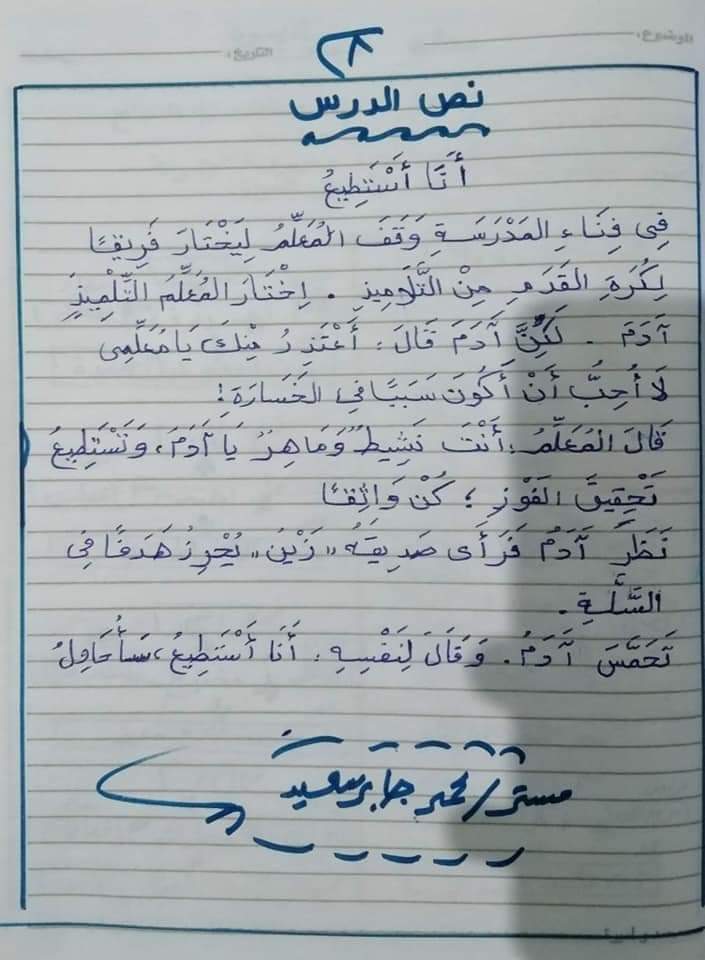 نص الدرس
أَنَا أَسْتَطِيعُ
فِي فِنَاءِ المَدْرَسَةِ وَقَفَ المُعَلِّمُ لِيَخْتَارَ فَرِيقًا
لِكُرَةِ القَدَمِ مِنْ التَّلَامِيذِ . اِخْتَارَ المُعَلِّمُ التِّلْمِيذَ
آدَمَ . لَكِنَّ آدَمَ قَالَ : أَعْتَذِرُ مِنْكَ يَا مُعَلِّمِى
لَا أُحِبُّ أَنْ أَكُونَ سَبَبًا فِي الخَسَارَةِ !
قَالَ المُعَلِّمُ : أَنْتَ نَشِيطٌ وَمَاهِرٌ يَا آدَمُ ، وَتَسْتَطِيعُ
تَحْقِيقَ الفَوْزِ ؛ كُنْ وَاثِقًا
نَظَرَ آدَمُ فَرَأَى صَدِيقَهُ " زَيْنَ " يُحْرِزُ هَدَفًا فِي
السَّلَّةِ .
تَحَمَّسَ آدَمُ . وَقَالَ لِنَفْسِهِ : أَنَا أَسْتَطِيعُ ، سَأُحَاوِلُ
مستر / محمد جابر سعيد